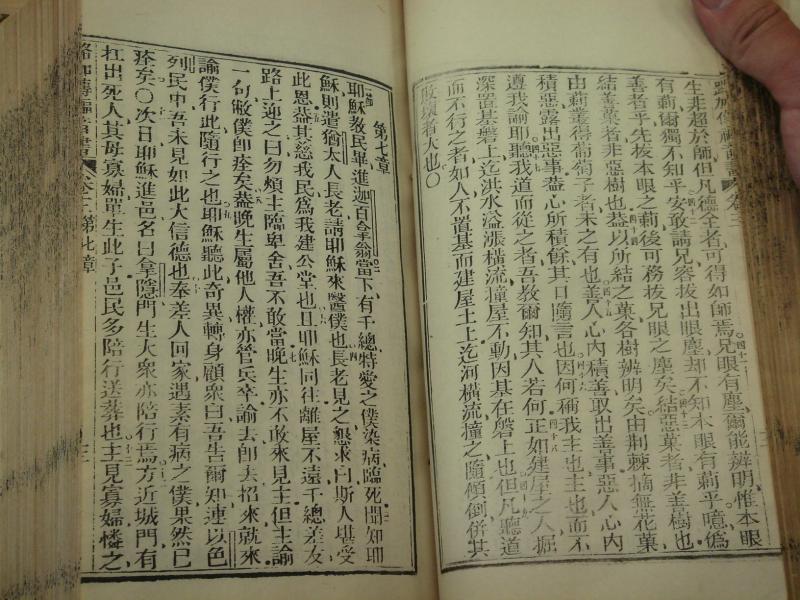 生非超於師但凡德全者可得如師焉兄眼有塵爾能辨明惟本眼
有莿爾獨不知乎安敢請兄容拔出眼塵却不知本眼有莿乎噫僞
善者乎先拔本眼之莿後可務拔兄眼之塵矣結惡菓者非善樹也
結善菓者非惡樹也葢以所結之菓各樹辨明矣由荆棘摘無花菓
由莿叢得葡萄子者未之有也善人心內積善取出善事惡人心內
積惡露出惡事葢心所積餘其口隨言也因何稱我主也主也而不
遵我諭耶聽我道而從之者吾教爾知其人若何正如建屋之人掘
深置基磐上迄洪水溢漲橫流撞屋不動因基在磐上也但凡聽道
而不行之者如人不置基而建屋土上迄河橫流撞之隨傾倒併其
敗壞者大也〇
第七章
耶穌教民畢進迦百拿翁當下有千總特愛之僕染病臨死聞知耶
穌則遣猶太人長老請耶穌來醫僕也長老見之懇求曰斯人堪受
此恩葢其慈我民爲我建公堂也且耶穌同往離屋不遠千總差友
路上迎之曰勿煩主臨卑舍吾不敢當晚生亦不敢來見主但主諭
一句敝僕卽痊矣葢晚生屬他人權亦管兵卒諭去卽去招來就來
諭僕行此隨行之也耶穌聽此奇異轉身顧衆曰吾告爾知連以色
列民中吾未見如此大信德也奉差人回家遇素有病之僕果然已
痊矣〇次日耶穌進邑名曰拿隱門生大衆亦陪行焉方近城門有
扛出死人其母寡婦單生此子邑民多陪行送葬也主見寡婦憐之
路加傳福音書 卷三 第七章